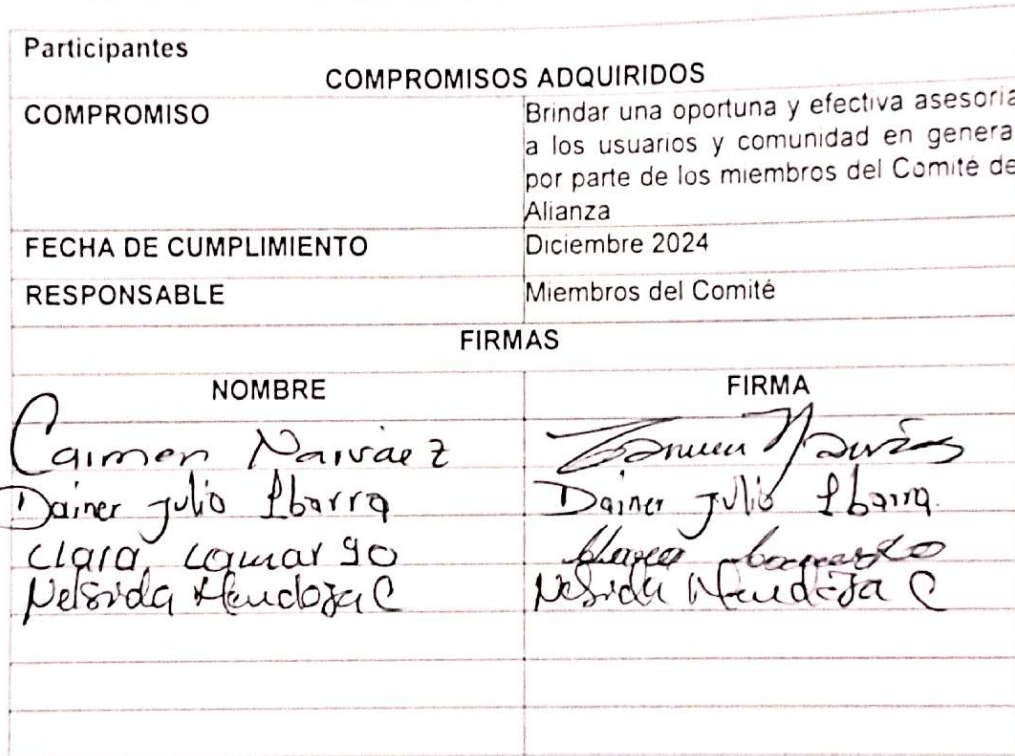 Participantes
COMPROMISOS ADQUIRIDOS
COMPROMISO
Brindar una oportuna y efectiva asesoría
a los usuarios y comunidad en genera
por parte de los miembros del Comité de
Alianza
FECHA DE CUMPLIMIENTO
Diciembre 2024
RESPONSABLE
Miembros del Comité
FIRMAS
NOMBRE FIRMA
Carmen Narváez Carmen Narváez
Dainer Julio Ibarra Dainer Julio Ibarra.
Clara Camargo Clara Camargo
Nelsida Mendoza C Nelsida Mendoza C